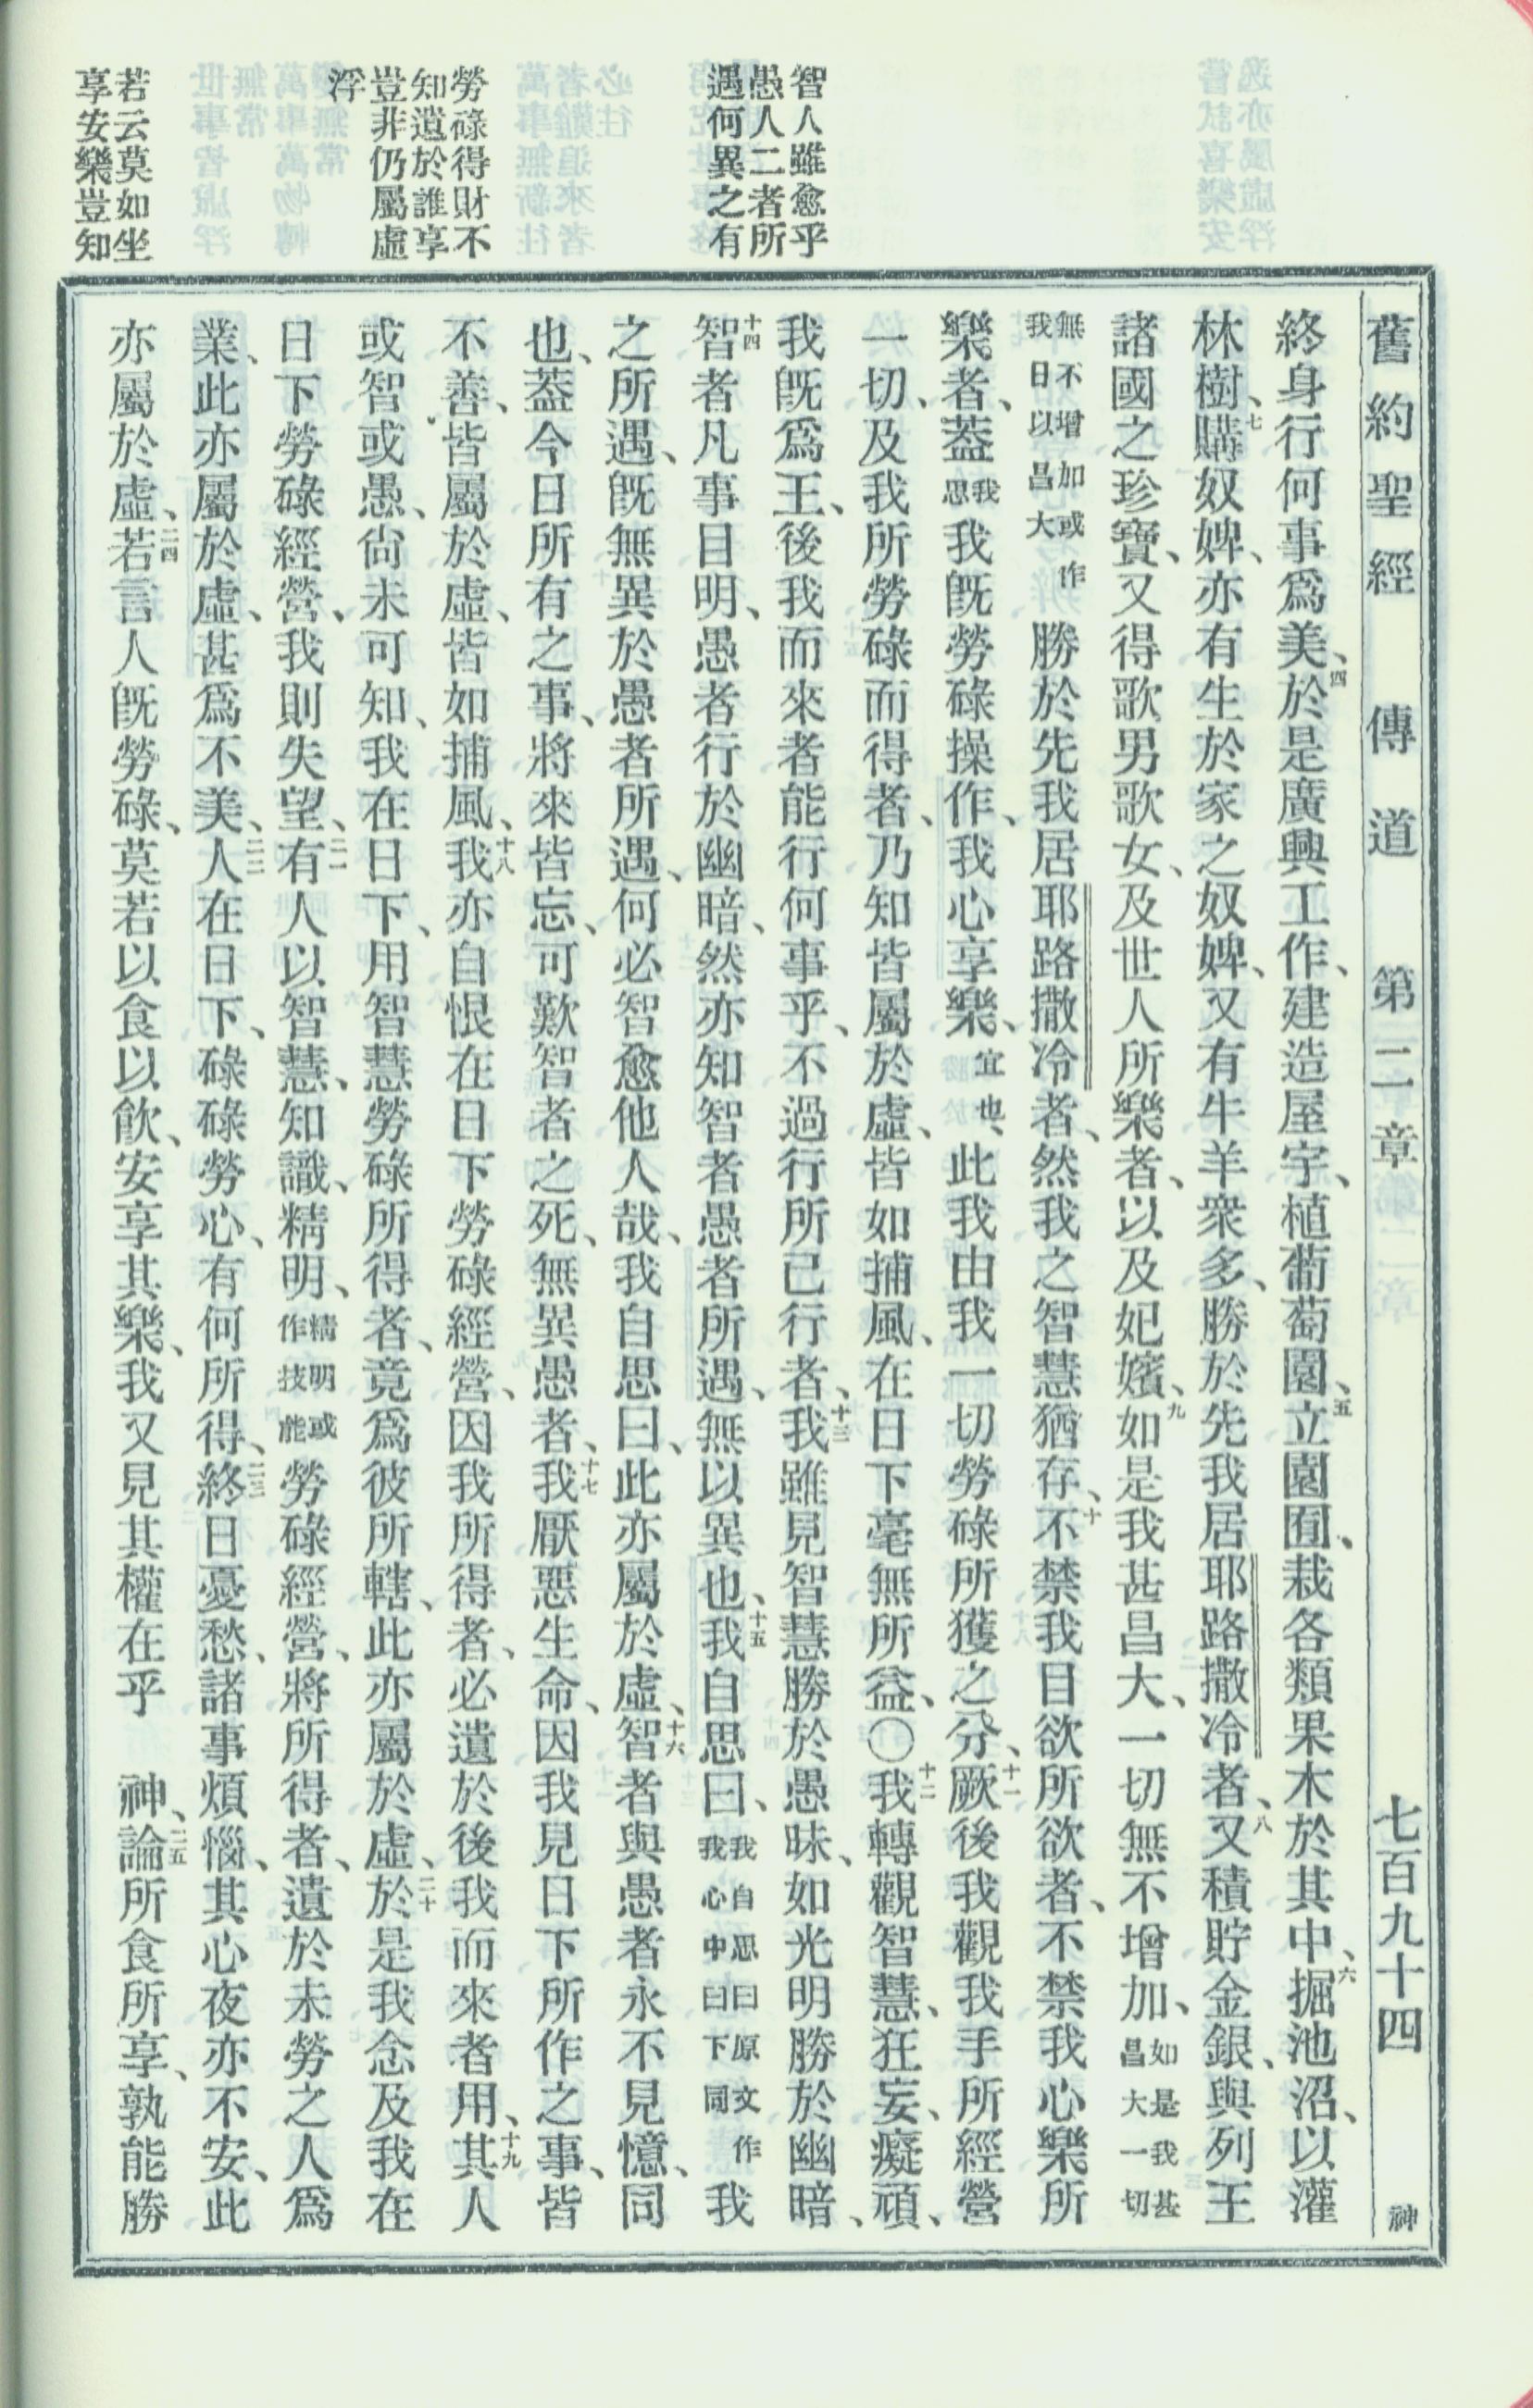 舊約聖經　傳道　第二章　七百九十四　神
智人雖愈乎
愚人二者所
遇何異之有
勞碌得財不
知遺於誰享
豈非仍屬虛
浮
若云莫如坐
享安樂豈知
終身行何事爲美、四於是廣興工作、建造屋宇、植葡萄園、五立園囿、栽各類果木於其中、六掘池沼、以灌
林樹、七購奴婢、亦有生於家之奴婢、又有牛羊衆多、勝於先我居耶路撒冷者、八又積貯金銀、與列王
諸國之珍寶、又得歌男歌女、及世人所樂者、以及妃嬪、九如是我甚昌大、一切無不增加、如是我甚昌大一切
無不增加或作我日以昌大勝於先我居耶路撒冷者、然我之智慧猶存、十不禁我目欲所欲者、不禁我心樂所
樂者、蓋我思我既勞碌操作、我心享樂、宜也、此我由我一切勞碌所獲之分、十一厥後我觀我手所經營
一切、及我所勞碌而得者、乃知皆屬於虛、皆如捕風、在日下毫無所益、〇十二我轉觀智慧、狂妄、癡頑、
我既爲王、後我而來者能行何事乎、不過行所已行者、十三我雖見智慧勝於愚昧、如光明勝於幽暗、
十四智者凡事目明、愚者行於幽暗、然亦知智者愚者所遇、無以異也、十五我自思曰、我自思曰原文作我心中曰下同我
之所遇、既無異於愚者所遇、何必智愈他人哉、我自思曰、此亦屬於虛、十六智者與愚者永不見憶、同
也、蓋今日所有之事、將來皆忘、可歎智者之死、無異愚者、十七我厭惡生命、因我見日下所作之事、皆
不善、皆屬於虛、皆如捕風、十八我亦自恨在日下勞碌經營、因我所得者、必遺於後我而來者用、十九其人
或智或愚、尙未可知、我在日下、用智慧勞碌所得者、竟爲彼所轄、此亦屬於虛、二十於是我念及我在
日下勞碌經營、我則失望、二一有人以智慧、知識、精明、精明或作技能勞碌經營、將所得者、遺於未勞之人爲
業、此亦屬於虛、甚爲不美、二二人在日下、碌碌勞心、有何所得、二三終日憂愁、諸事煩惱、其心夜亦不安、此
亦屬於虛、二四若言人既勞碌、莫若以食以飲、安享其樂、我又見其權在乎　神、二五論所食所享、孰能勝